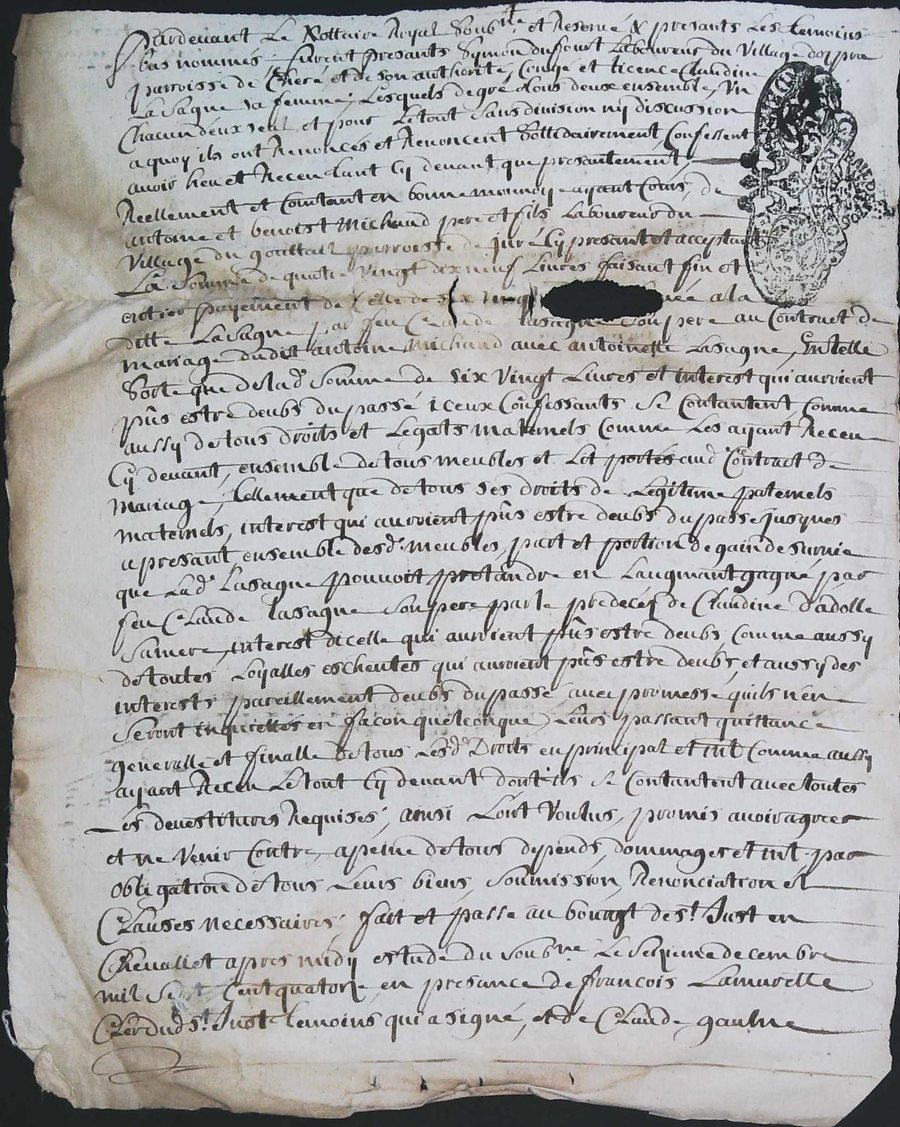 Pardevant Le Nottaire Royal Soubné et Reservé & presants Les temoins
bas nommés furent presants Symon dufourt Laboureur du Village
parroisse de Cheré et de son authorité, Congé et licence Claudine
La Sagne sa femme, Lesquels de gré tous deux ensemble, Un
Chacun deux seul et pour Letout sans division ny discussion
a quoy ils ont Renoncés et Renoncent Sollidairement, Confessent
avoir heu et Receu tant Cy devant que presantement
Reellement et Contant en bonne monnoye ayant Cours, de
antoine et benoist Michaud pere et fils Laboureur du
Village du parroisse de juré Cy presant et acceptant
La Somme de quatre Vingt dix neuf Livres faisant fin et
entier payement de Celle de Six Vingt a la
ditte LaSagne par feu Claude Lasagne Son pere au Contract de
mariage dudit antoine Michaud avec antoinette Lasagne, Entelle
Sorte que de lad. Somme de Six Vingt Livres et interest qui auroient
pûs estre deubs du passé iceux Confessants Se Contantent, Comme
aussy de tous droits et Legats maternels Comme Les ayant Receu
Cy devant, ensemble de tous meubles et Lot portés aud Contract de
mariage, tellement que de tous Ses droits de Legitime paternels
maternels, interest qui auroient pûs estre deubs du passé jusques
a presant ensemble desd. meubles, part et portion de gain de survie
que Lad. Lasagne pouvoit pretandre en Laugmant gagné par
feu Claude lasagne Son pere par le predecéz de Claudine dadolle
Sa mere, interest dicelle qui auroient pûs estre deubs Comme aussy
de toutes Loyalles escheutes qui auroient pûs estre deubs, et aussy des
interests pareillement deubs du passé, avec promesse quils n'en
Seront inquiettés en façon quelconque, Leurs passant quittance
generalle et finalle de tous Lesd. Droits en principal et int. Comme aussy
ayant Receu Le tout Cy devant dont ils Se Contantent avec toutes
Les devestitures Requises, ainsi Lont Voulus, promis avoir agrees
et ne Venir Contre, a peine de tous depends, dommages et int. par
obligation de tous Leurs biens, Soumission, Renonciation et
Clauses necessaires, fait et passé au bourgt de St. Just en
Chevallet apres midy estude du Soubné Le Seizieme decembre
mil Sept Cent quatorze en presance de françois Lamurette
Clerc dud St. Just temoins qui a signé, et de Claude gaulne